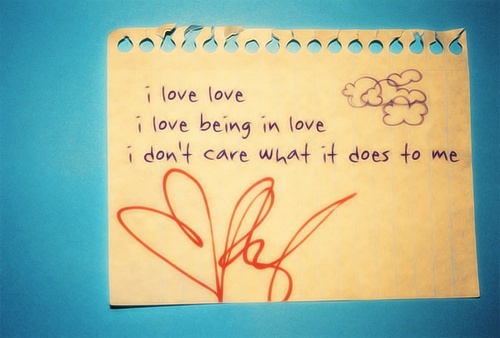 i love love
i love being in love
i don't care what it does to me